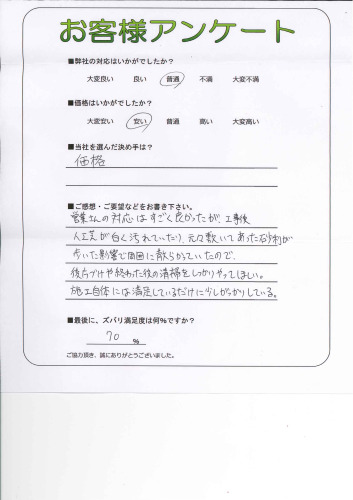 お客様アンケート
■弊社の対応はいかがでしたか？
大変良い 良い 普通 不満 大変不満
■価格はいかがでしたか？
大変安い 安い 普通 高い 大変高い
■当社を選んだ決め手は？
価格
■ご感想・ご要望などをお書き下さい。
営業さんの対応はすごく良かったが、工事後
人工芝が白く汚れていたり、元々敷いてあった砂利が
歩いた影響で周囲に散らかっていたので、
後片づけや終わった後の清掃をしっかりやってほしい。
施工自体には満足しているだけに少しがっかりしている。
■最後に、ズバリ満足度は何%ですか？
70 %
ご協力頂き、誠にありがとうございました。